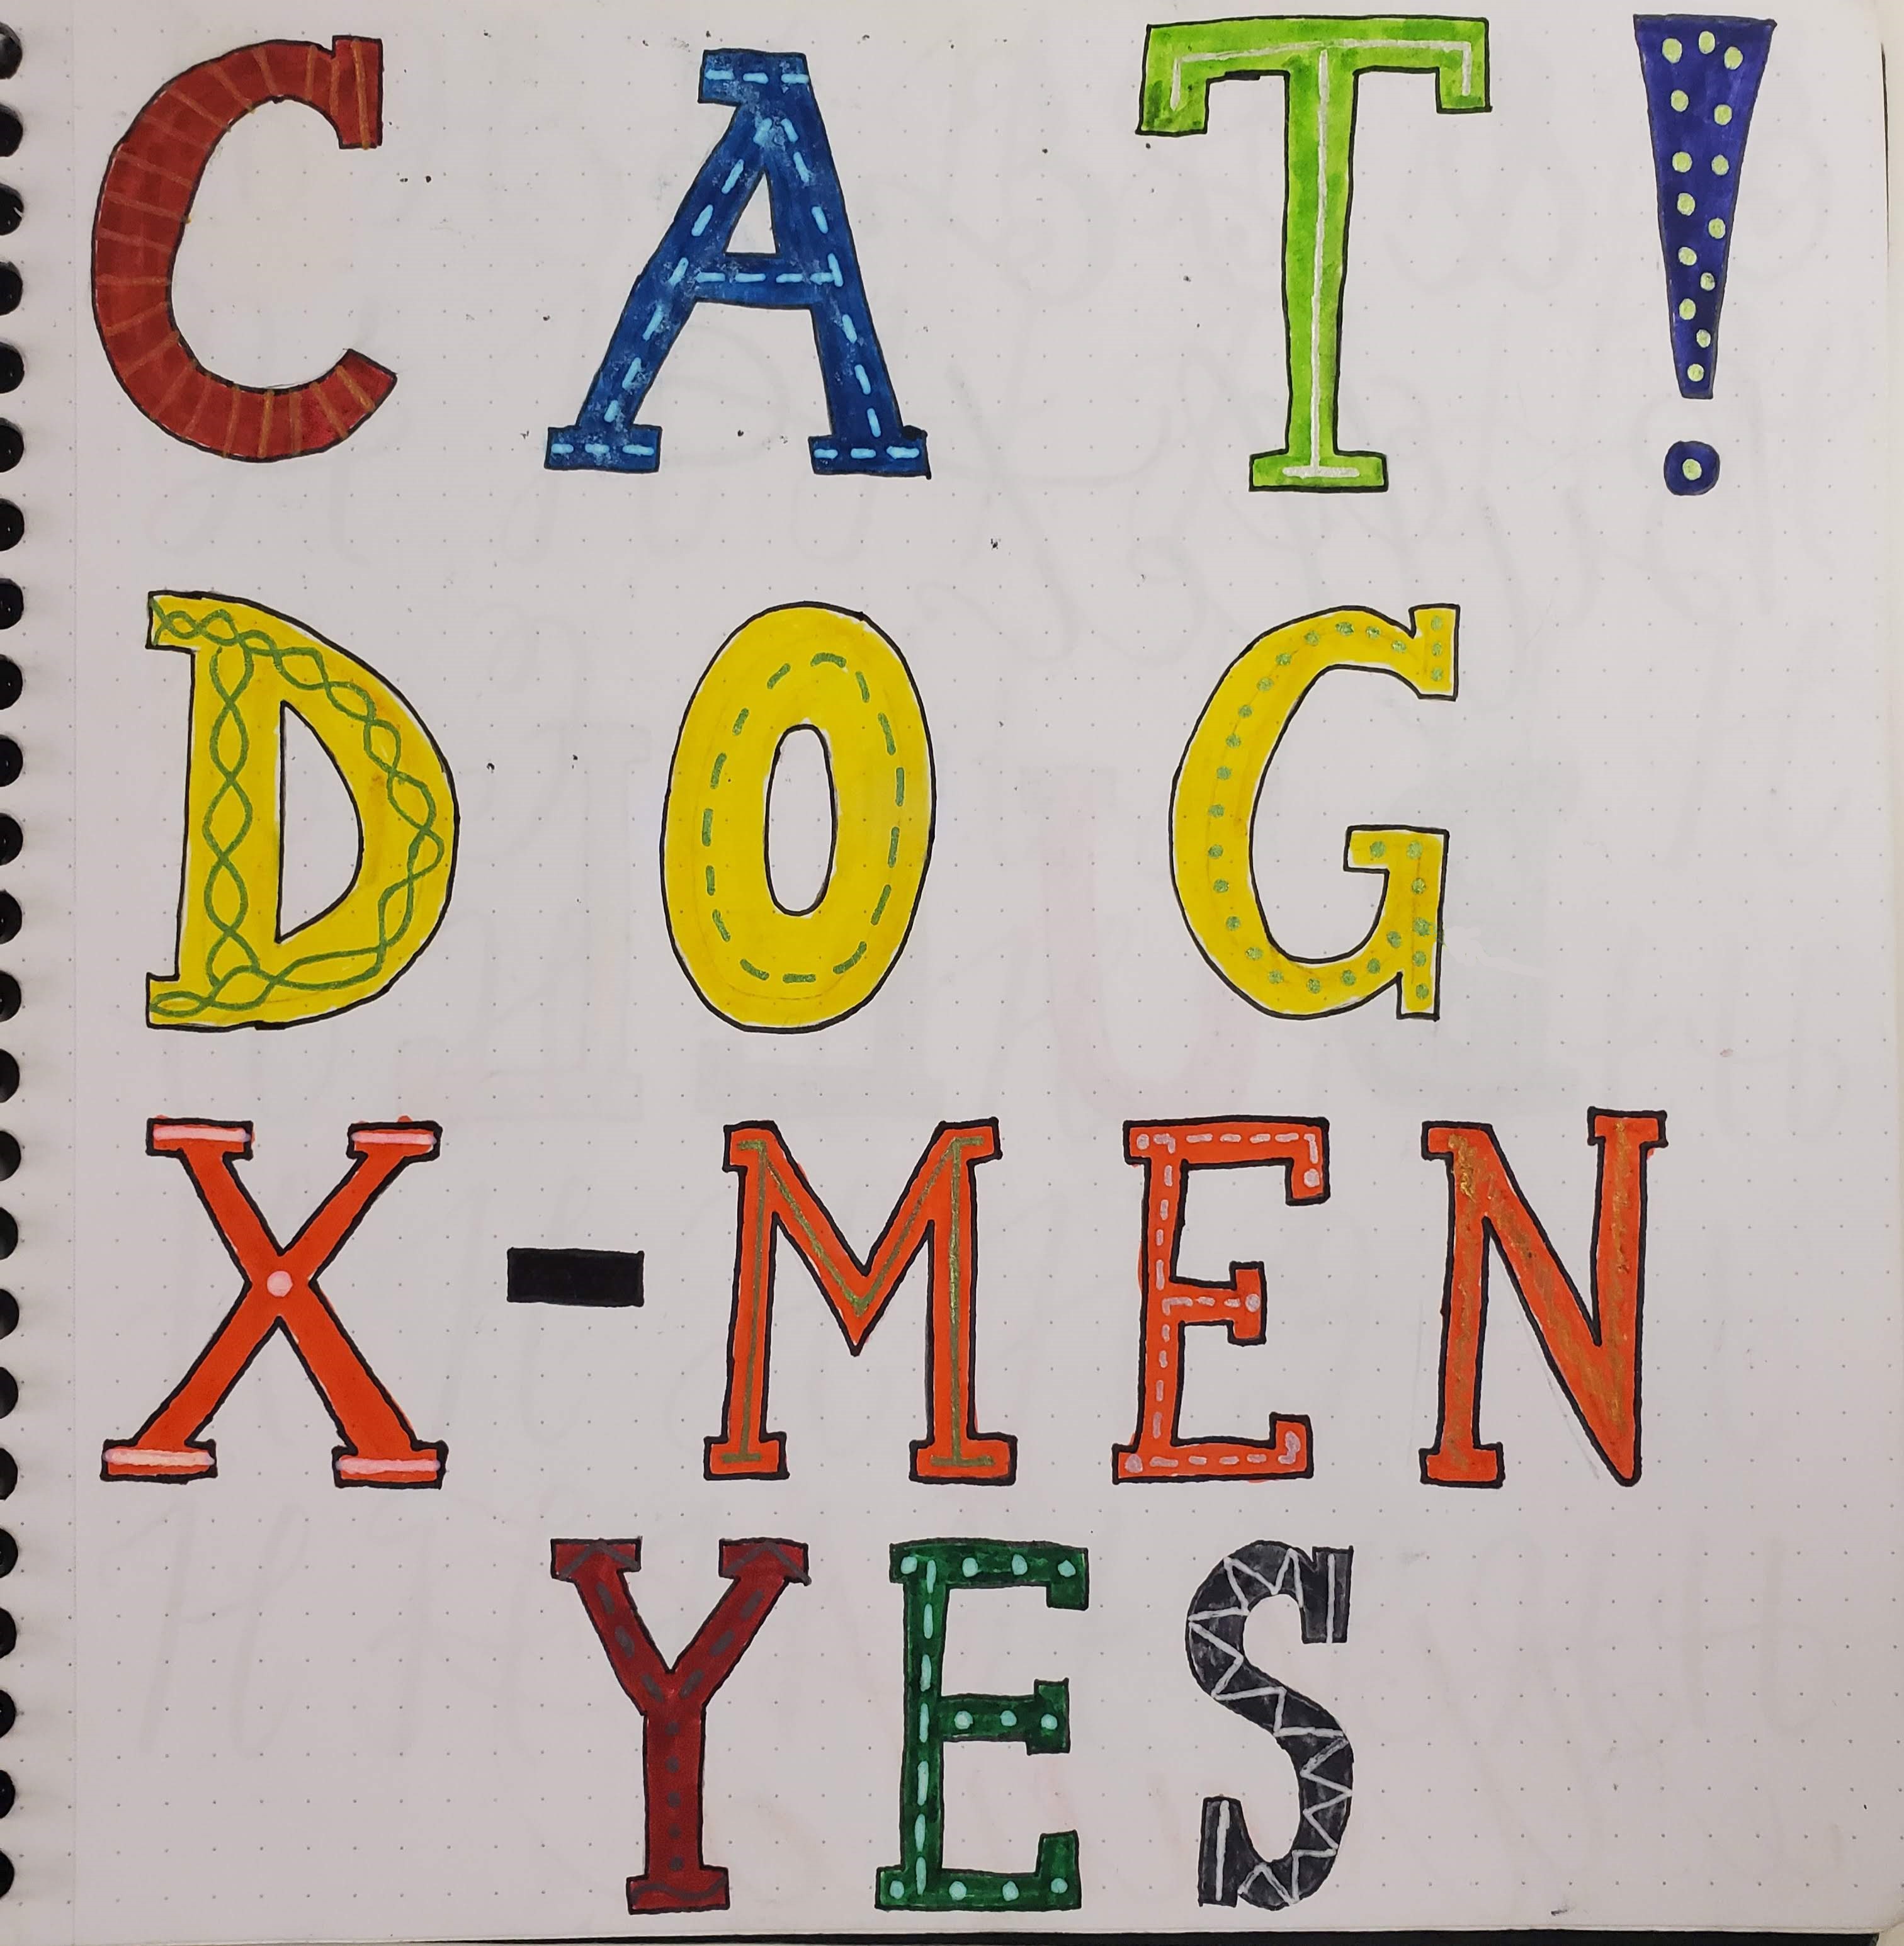 CAT!
DOG
X-MEN
YES